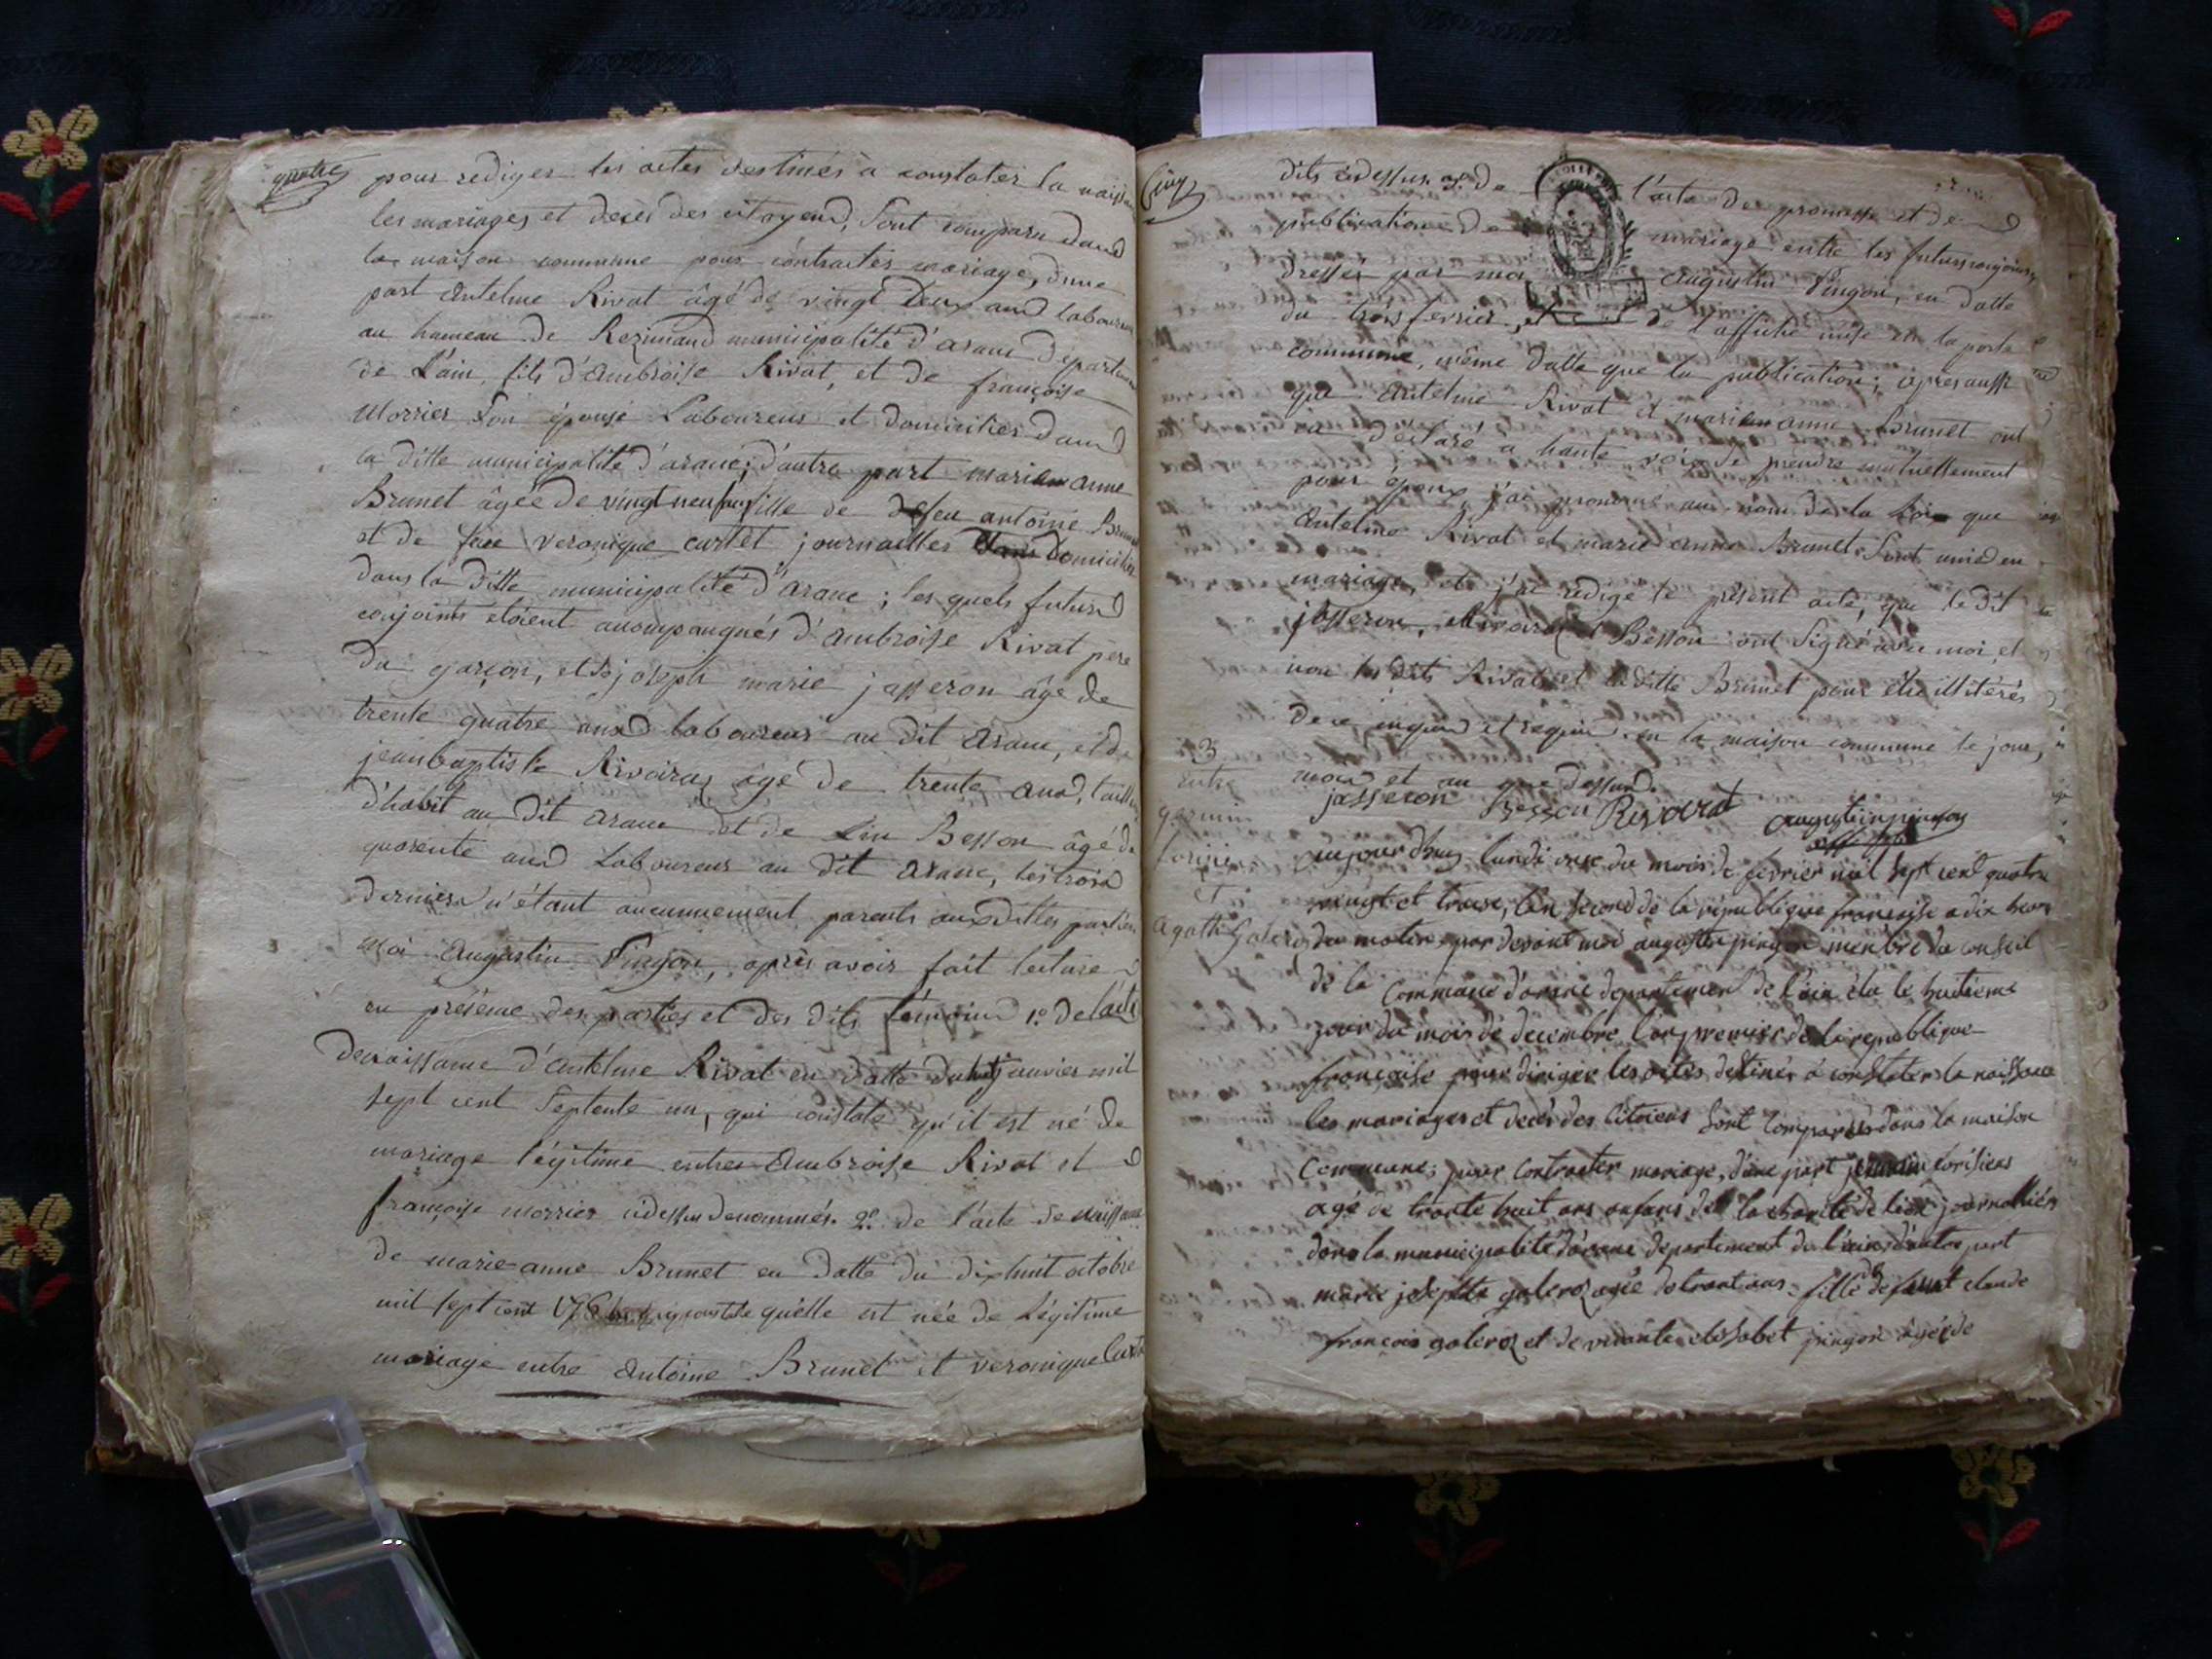 quatre
pour rediger les actes destinés a constater la naissan
les mariages et decès des citoyens, sont comparu dans
la maison commune pour contracter mariage, d'une
part Antelme Rivat âgé de vingt deux ans laboureur
au hameau de Rezinand municipalité d'arane departem
de L'ain, fils d'Ambroise Rivat, et de françoise
Morrier son épouse Laboureurs et domiciliés dans
la ditte municipalité d'arane; d'autre part marie anne
Brunet âgée de vingt neuf ans fille de defeu antoine Brunet
et de veronique curtet journaillers domiciliés
dans la ditte municipalité d'arane; les quels futurs
conjoints etoient accompangnés d'ambroise Rivat pere
du garçon, et de joseph marie jasseron âgé de
trente quatre ans laboureur au dit arane, et de
jean baptiste Rivoiraz âgé de trente ans, tailleur
d'habit au dit arane et de Besson âgé de
quarente ans Laboureur au dit Arane, les trois
derniers n'étant aucunnement parents auxdittes parties
moi Augustin Pingon, après avoir fait lecture
en présence des parties et des dits témoins 1º. de l'acte
de naissance d'antelme Rivat en datte du huit janvier mil
sept cent septente un, qui constate qu'il est né de
mariage légitime entre Ambroise Rivat et
françoise morrier cidessus denommés. 2º. de l'acte de naissance
de marie anne Brunet en datte du dixhuit octobre
mil sept cent qui constate quélle est née de Légitime
mariage entre Antoine Brunet et veronique Curtet
Cinq
dits cidessus. 3º. de l'acte de promesse et de
publication de mariage entre les futurs conjoints,
dressés par moi Augustin Pingon, en datte
du trois fevrier, et de l'affiche mise à la porte
commune, même datte que la publication; après aussi
que Antelme Rivat et marie anne Brunet ont
eu déclaré a haute voix se prendre mutuellement
pour époux, j'ai prononcé au nom de la Loi que
Antelme Rivat et marie anne Brunet sont unis en
mariage, et j'ai rédigé le présent acte, que le dit
jasseron, Rivoiraz et Besson ont signé avec moi, et
non les dits Rivat et la ditte Brunet pour être illitérés
de ce enquis et requis. en la maison commune le jour,
mois et an que dessus.
jasseron Besson Rivoirat augustin pingon
3
Entre
germin
forisier
et
agathe Galeroz
aujourdhuy lundi onze du mois de fevrier mil sept cent quatre
vingt et treize, l'an second de la république françoise a dix heures
du matin par devant moi augustin pingon membre du conseil
de la Commune d'arane departement de l'ain élu le huitieme
jour du mois de decembre l'an premier de la republique
françoise pour diriger les actes destinés à constater la naissance
les mariages et decès des Citoiens sont comparus dans la maison
Commune; pour Contracter mariage, d'une part forisier
agé de trante huit ans anfans de la charité de lion journallier
dans la municipalité d'arane departement de l'ain d'autre part
marie josephte galeroz agée de trant ans fille de defeunt claude
françois galeroz et de vivante elisabet pingon âgée de